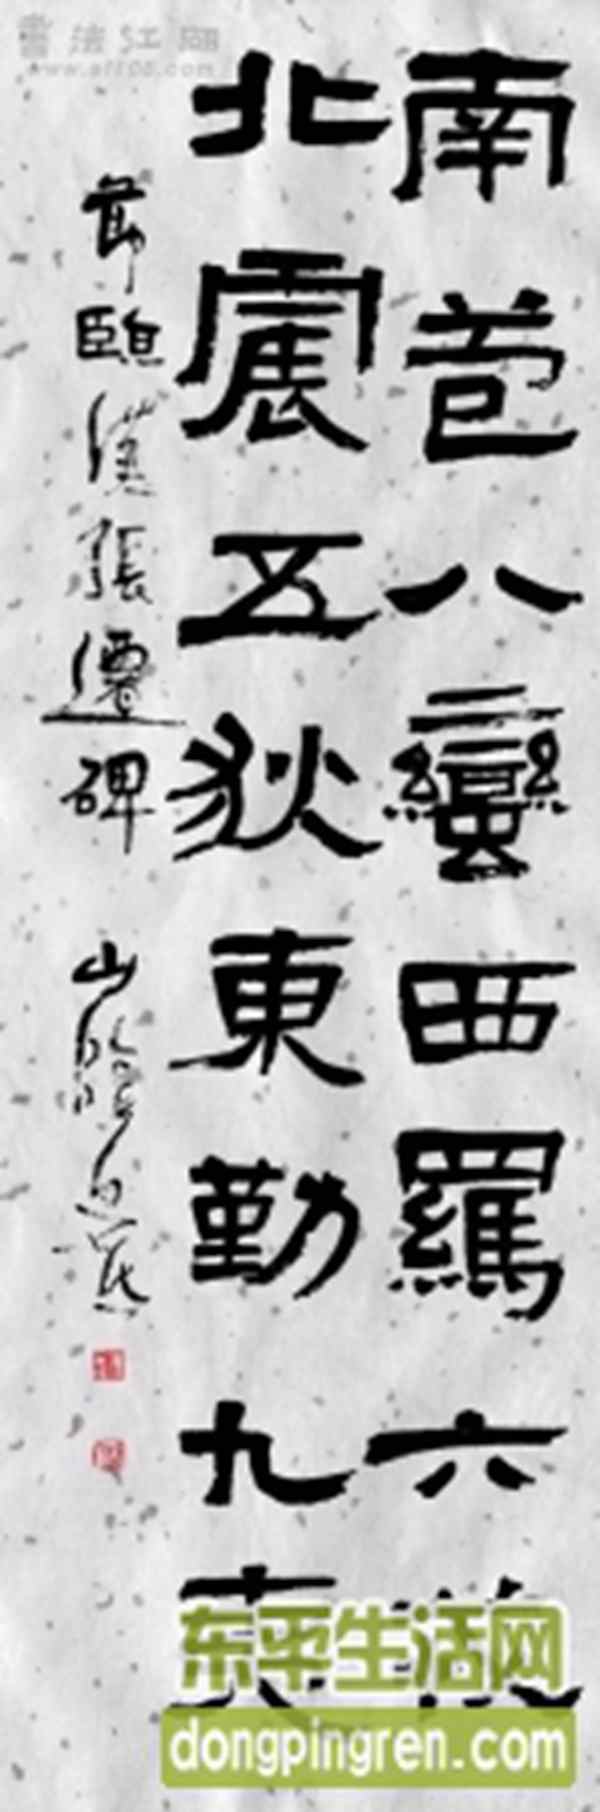 南苞八蠻西羈六
北震五狄東勤九
節臨漢張遷碑
山陰
书法江湖
东平生活网
dongpingren.com